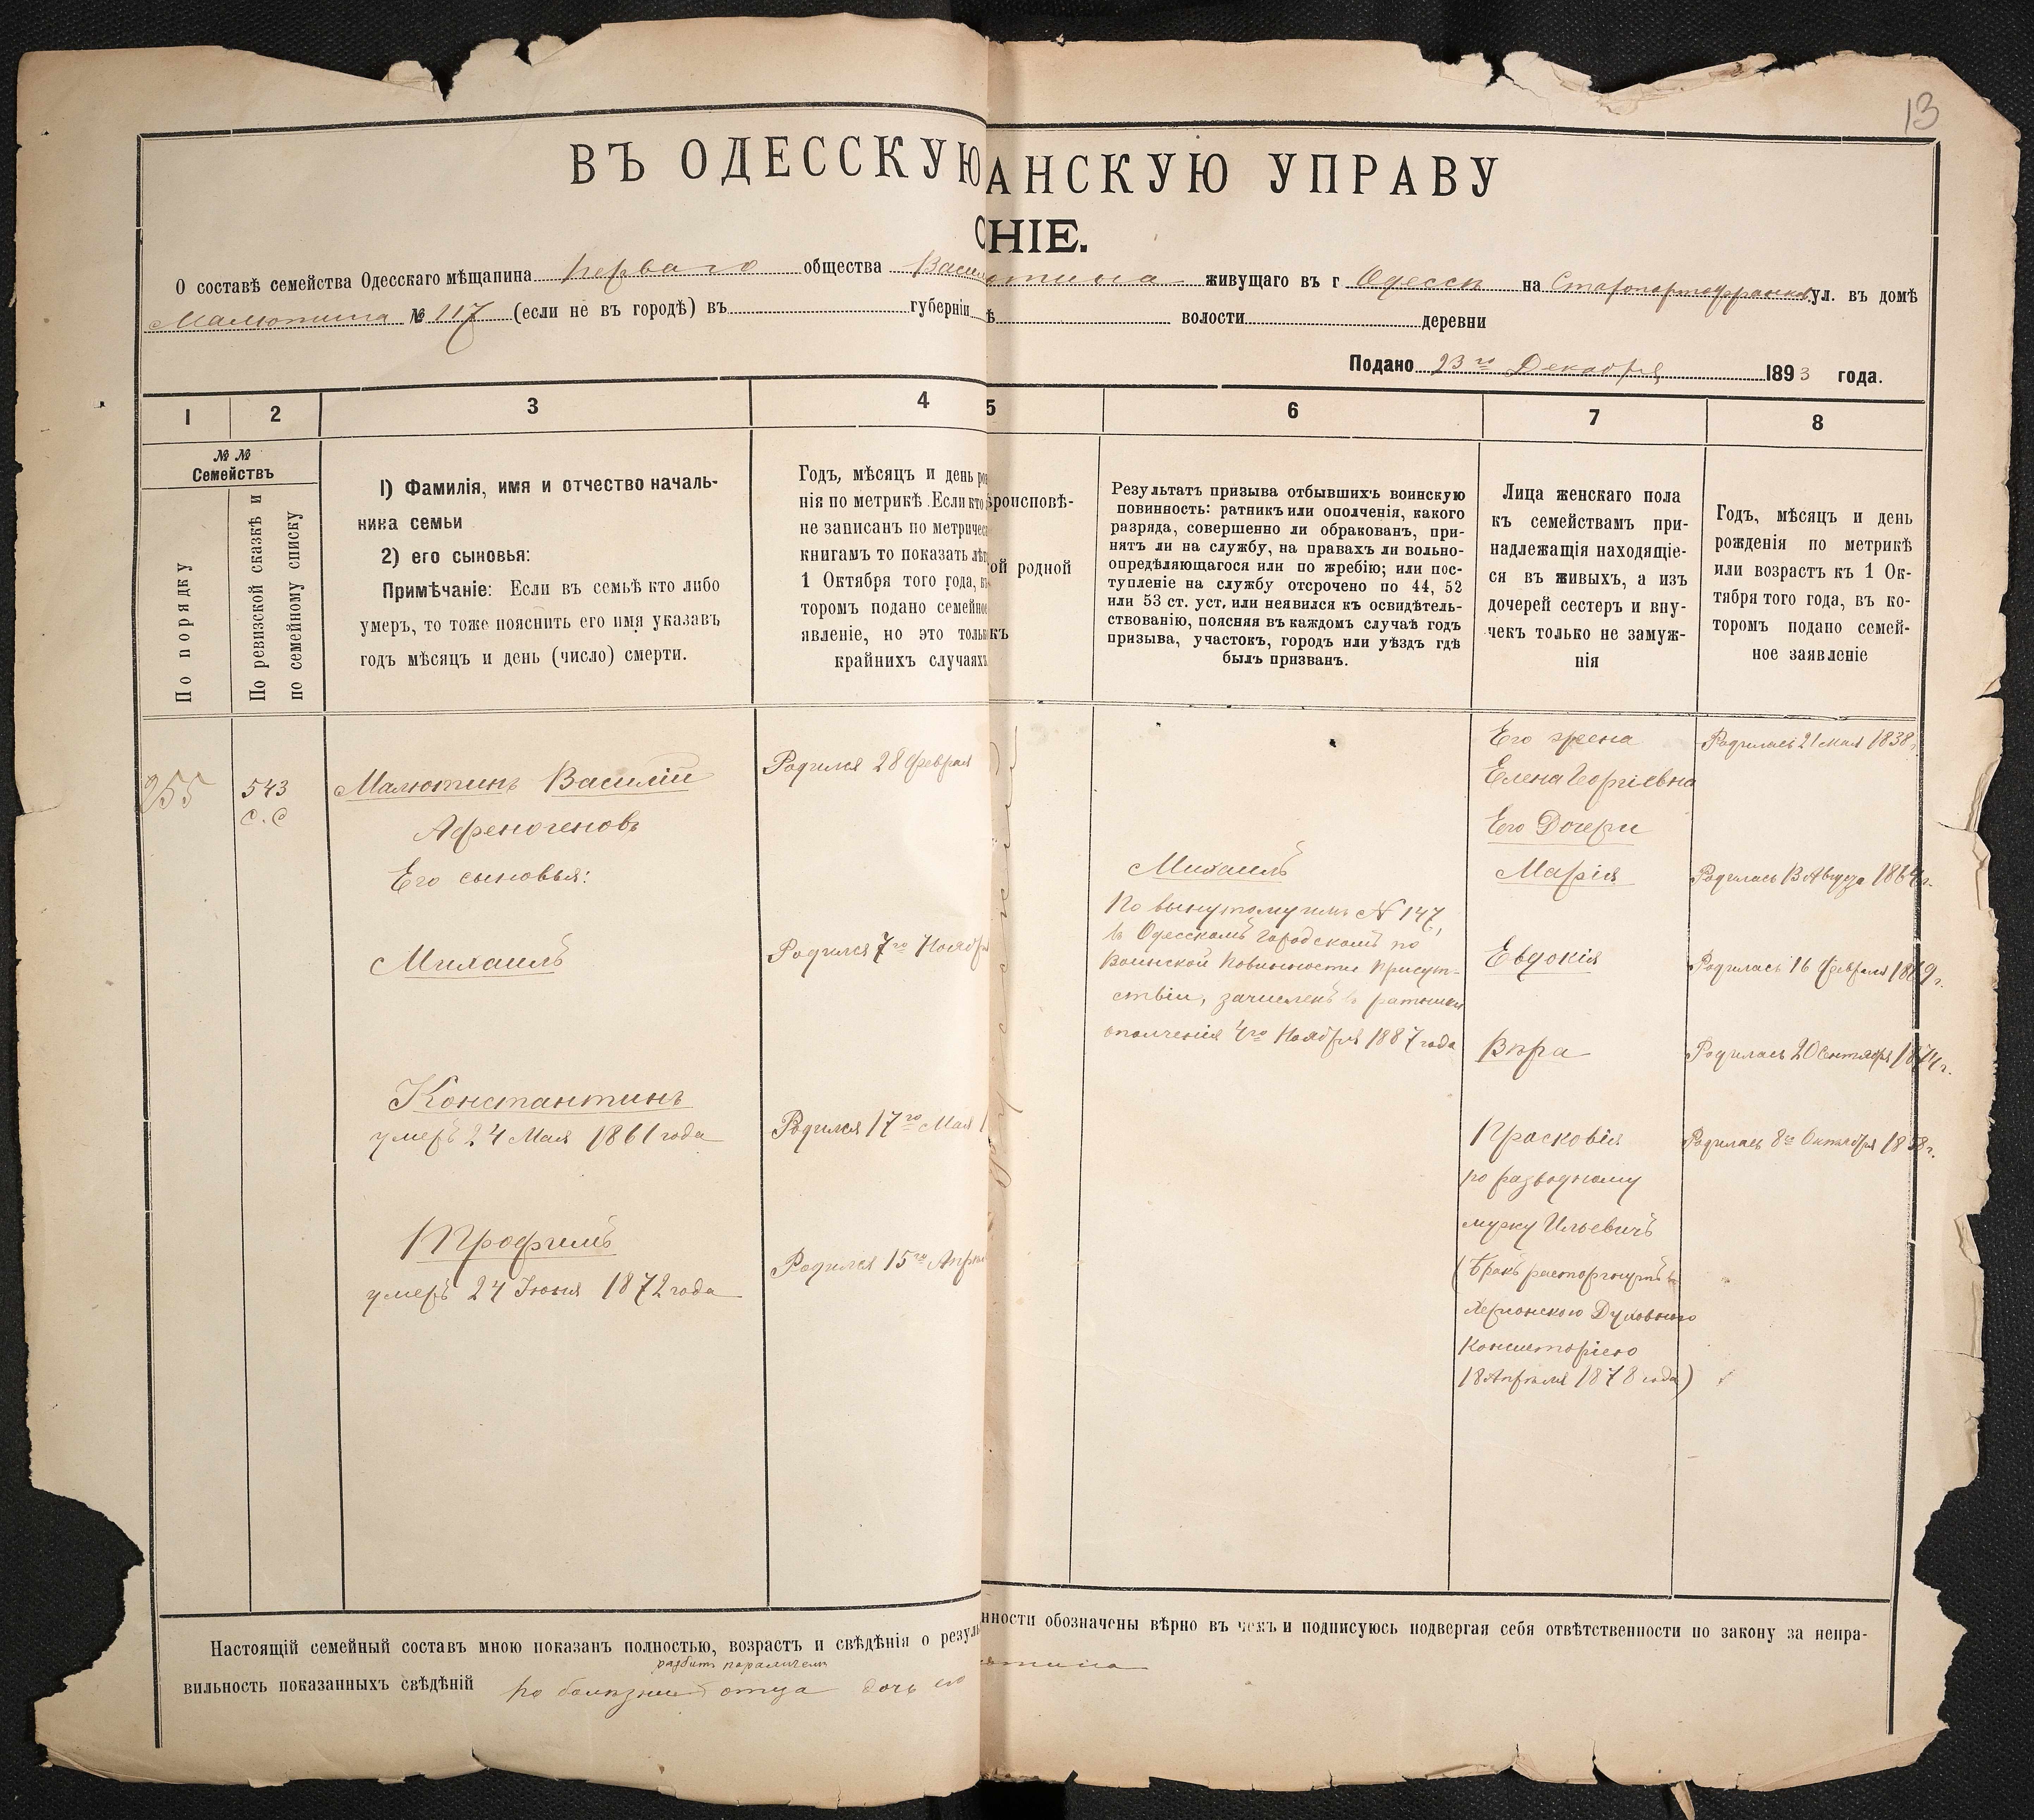 13
ВЪ ОДЕССКУЮ АНСКУЮ УПРАВУ
НІЕ.
О составѣ семейства Одесскаго мѣщанина перваго общества Васи ютина живущаго въ г Одессѣ на Старопортофранков. ул. въ домѣ
Малютина № 117 (если не въ городѣ) въ губерніи ѣ волости деревни
Подано 23го Декабря 1893 года.
1 2 3 4 5 6 7 8
№ №
Семействъ
По порядку
По ревизской сказкѣ и
по семейному списку
1) Фамилія, имя и отчество началь-
ника семьи
2) его сыновья:
Примѣчаніе: Если въ семьѣ кто либо
умеръ, то тоже пояснить его имя указавъ
годъ мѣсяцъ и день (число) смерти.
Годъ, мѣсяцъ и день ро
нія по метрикѣ. Если кто
не записанъ по метричес
книгамъ то показать лѣт
1 Октября того года, въ
торомъ подано семейное
явленіе, но это только
крайнихъ случаяхъ
ѣроисповѣ-
ой родной
къ
Результатъ призыва отбывшихъ воинскую
повинность: ратникъ или ополченія, какого
разряда, совершенно ли обракованъ, при-
нятъ ли на службу, на правахъ ли вольно-
опредѣляющагося или по жребію; или пос-
тупленіе на службу отсрочено по 44, 52
или 53 ст. уст, или неявился къ освидѣтель-
ствованію, поясняя въ каждомъ случаѣ годъ
призыва, участокъ, городъ или уѣздъ гдѣ
былъ призванъ.
Лица женскаго пола
къ семействамъ при-
надлежащія находящіе-
ся въ живыхъ, а изъ
дочерей сестеръ и вну-
чекъ только не замуж-
нія
Годъ, мѣсяцъ и день
рожденія по метрикѣ
или возрастъ къ 1 Ок-
тября того года, въ ко-
торомъ подано семей-
ное заявленіе
255
543
С.С
Малютинъ Василій
Афеногеновъ
Его сыновья:
Михаилъ
Константинъ
умеръ 24 Мая 1861 года
Трофимъ
умеръ 24 Іюня 1872 года
Родился 28 Феврал
Родился 7го Ноябр
Родился 17го Мая 1
Родился 15го Апрѣл
Михаилъ
По вынутому имъ № 147,
въ Одесскомъ Городскомъ по
Воинской Повинности Присут-
ствіи, зачисленъ въ ратники
ополченія 4го Ноября 1887 года
Его жена
Елена Георгіевна
Его Дочери
Марія
Евдокія
Вѣра
Прасковія
по разводному
мужу Ильевичъ
(Бракъ расторгнутъ въ
Херсонскою Духовною
Консисторіею
18 Апрѣля 1878 года)
Родилась 21 мая 1838 г.
Родилась 13 Августа 1864 г.
Родилась 16 Февраля 1869 г.
Родилась 20 Сентября 1874 г.
Родилась 8го Октября 1858 г.
Настоящій семейный составъ мною показанъ полностью, возрастъ и свѣдѣнія о резуль нности обозначены вѣрно въ чемъ и подписуюсь подвергая себя отвѣтственности по закону за непра-
разбитъ параличемъ
вильность показанныхъ свѣдѣній по болѣзни отца дочь его ютина